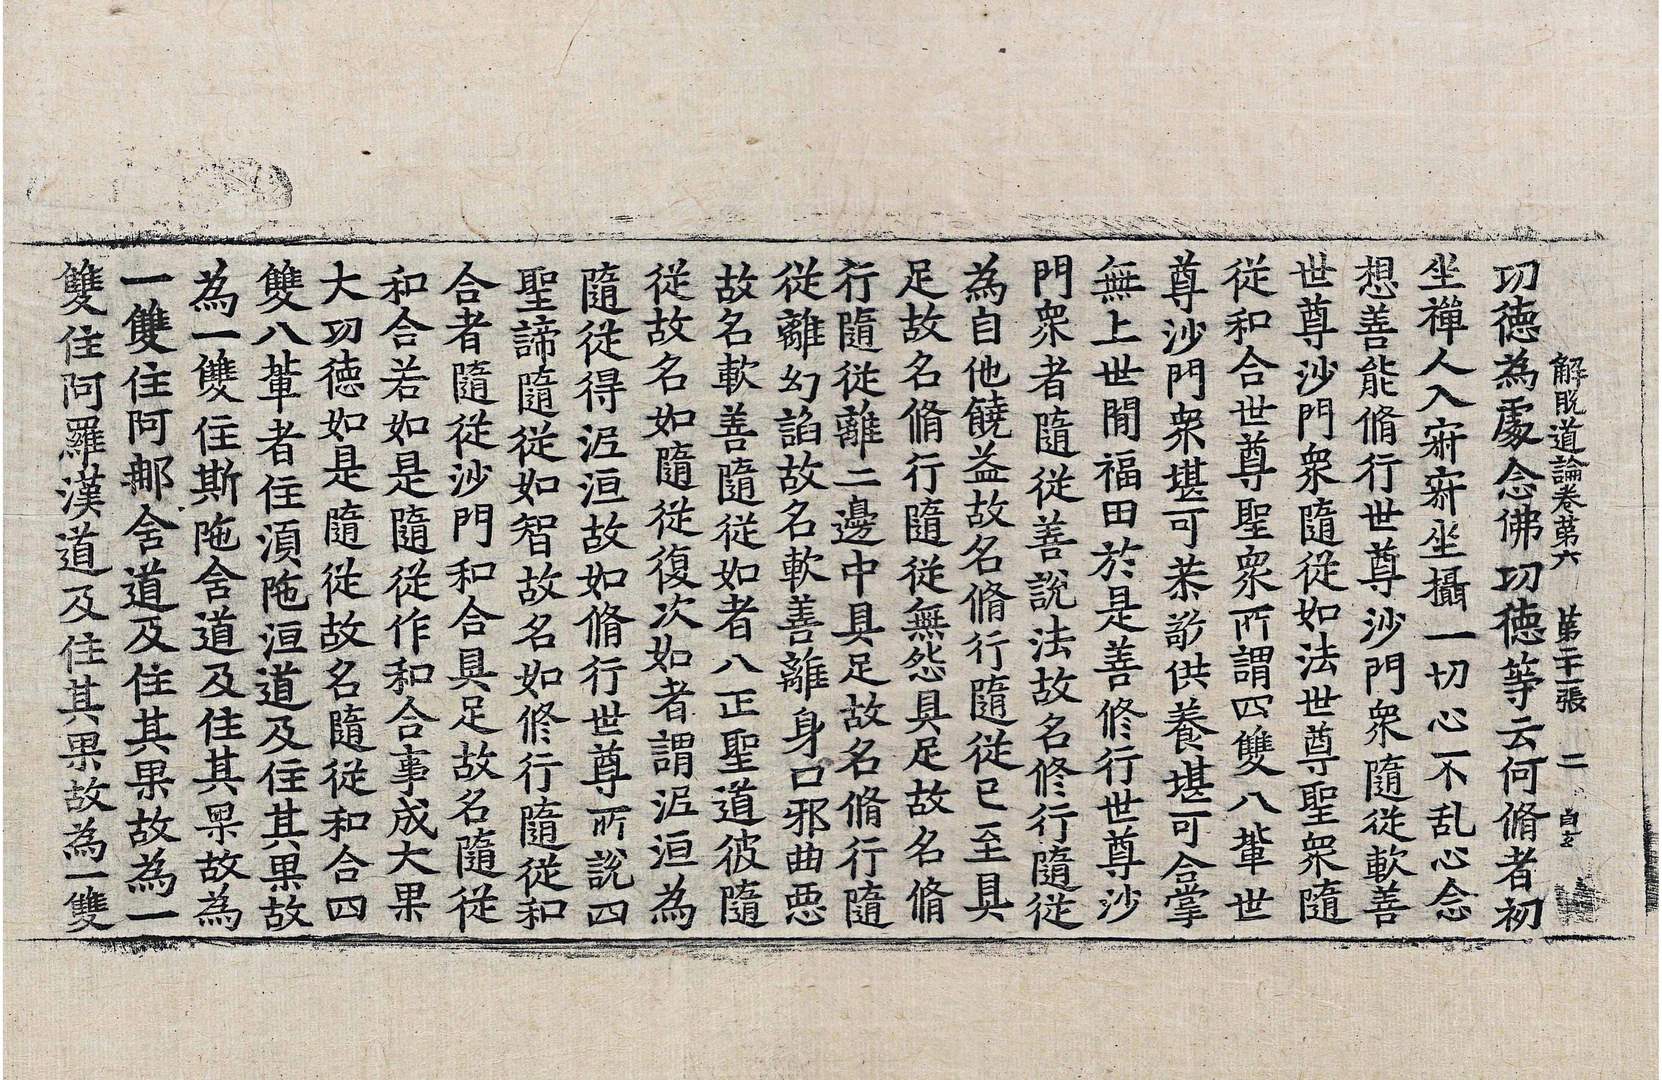 解脫道論卷第六 第二十一張 二
功德為處念佛功德等云何脩者初
坐禪人入寂寂坐攝一切心不乱心念
想善能脩行世尊沙門衆隨從軟善
世尊沙門衆隨從如法世尊聖衆隨
從和合世尊聖衆所謂四雙八輩世
尊沙門衆堪可恭敬供養堪可合掌
無上世間福田於是善修行世尊沙
門衆者隨從善說法故名修行隨從
為自他饒益故名脩行隨從已至具
足故名脩行隨從無怨具足故名脩
行隨從離二邊中具足故名脩行隨
從離幻諂故名軟善離身口邪曲惡
故名軟善隨從如者八正聖道彼隨
從故名如隨從復次如者謂泥洹為
隨從得泥洹故如脩行世尊所說四
聖諦隨從如智故名如修行隨從和
合者隨從沙門和合具足故名隨從
和合若如是隨從作和合事成大果
大功德如是隨從故名隨從和合四
雙八輩者住須陁洹道及住其果故
為一雙住斯陁含道及住其果故為
一雙住阿那含道及住其果故為一
雙住阿羅漢道及住其果故為一雙